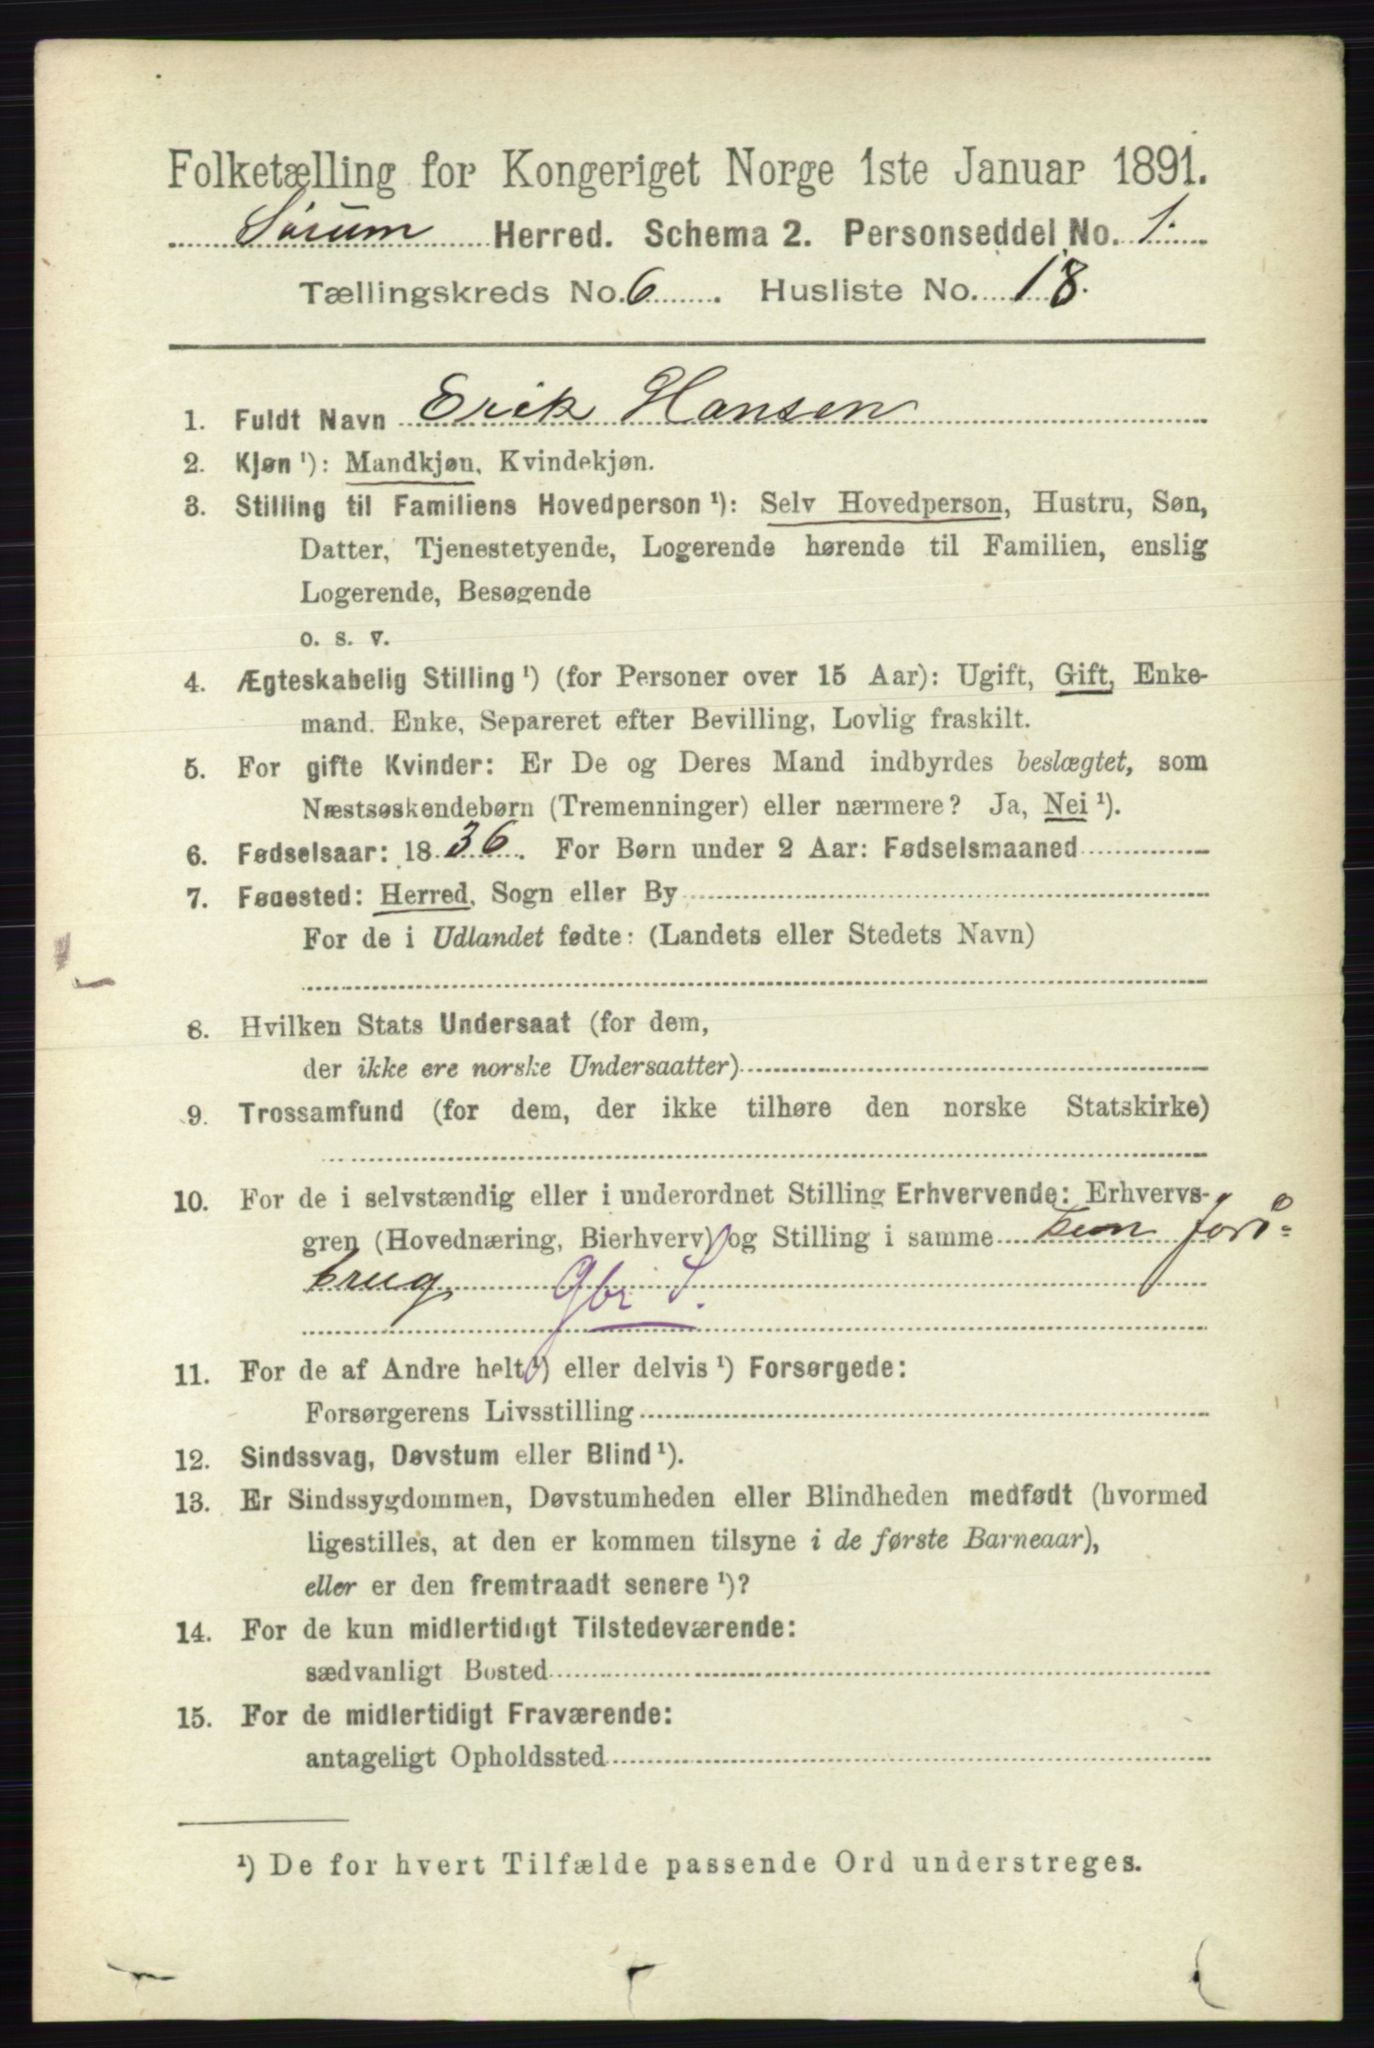 Folketælling for Kongeriget Norge 1ste Januar 1891.
Sørum Herred. Schema 2. Personseddel No. 1.
Tællingskreds No. 6. Husliste No. 18.
1. Fuldt Navn Erik Hansen
2. Kjøn ¹): Mandkjøn, Kvindekjøn.
3. Stilling til Familiens Hovedperson ¹): Selv Hovedperson, Hustru, Søn,
Datter, Tjenestetyende, Logerende hørende til Familien, enslig
Logerende, Besøgende
o. s. v.
4. Ægteskabelig Stilling ¹) (for Personer over 15 Aar): Ugift, Gift, Enke-
mand. Enke, Separeret efter Bevilling, Lovlig fraskilt.
5. For gifte Kvinder: Er De og Deres Mand indbyrdes beslægtet, som
Næstsøskendebørn (Tremenninger) eller nærmere? Ja, Nei ¹).
6. Fødselsaar: 1836. For Børn under 2 Aar: Fødselsmaaned
7. Fødested: Herred, Sogn eller By
For de i Udlandet fødte: (Landets eller Stedets Navn)
8. Hvilken Stats Undersaat (for dem,
der ikke ere norske Undersaatter)
9. Trossamfund (for dem, der ikke tilhøre den norske Statskirke)
10. For de i selvstændig eller i underordnet Stilling Erhvervende: Erhvervs-
gren (Hovednæring, Bierhverv) og Stilling i samme kun Jord-
brug
Gbr S.
11. For de af Andre helt ¹) eller delvis ¹) Forsørgede:
Forsørgerens Livsstilling
12. Sindssvag, Døvstum eller Blind ¹).
13. Er Sindssygdommen, Døvstumheden eller Blindheden medfødt (hvormed
ligestilles, at den er kommen tilsyne i de første Barneaar),
eller er den fremtraadt senere ¹)?
14. For de kun midlertidigt Tilstedeværende:
sædvanligt Bosted
15. For de midlertidigt Fraværende:
antageligt Opholdssted
¹) De for hvert Tilfælde passende Ord understreges.